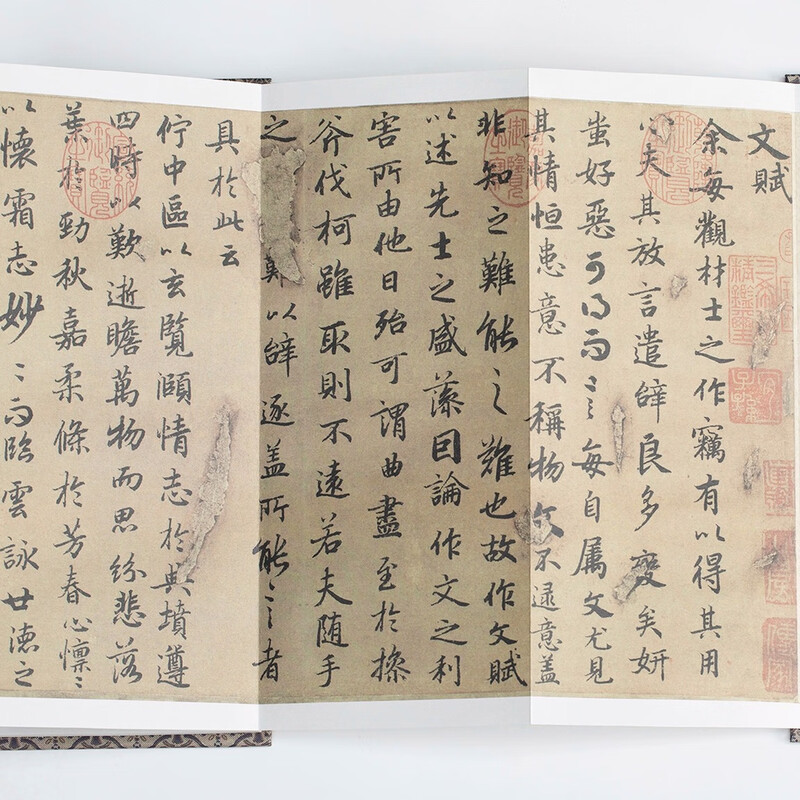 文賦
余每觀材士之作竊有以得其用
心夫其放言遣辭良多變矣妍
蚩好惡可得而言每自属文尤見
其情恒患意不稱物文不逮意盖
非知之難能之難也故作文賦
以述先士之盛藻因論作文之利
害所由他日殆可謂曲盡至於操
斧伐柯雖取則不遠若夫随手
之難以辭逐盖所能言者
具於此云
佇中區以玄覽頤情志於典墳遵
四時以歎逝瞻萬物而思紛悲落
葉於勁秋嘉柔條於芳春心懍〻
以懷霜志妙〻而臨雲詠世德之